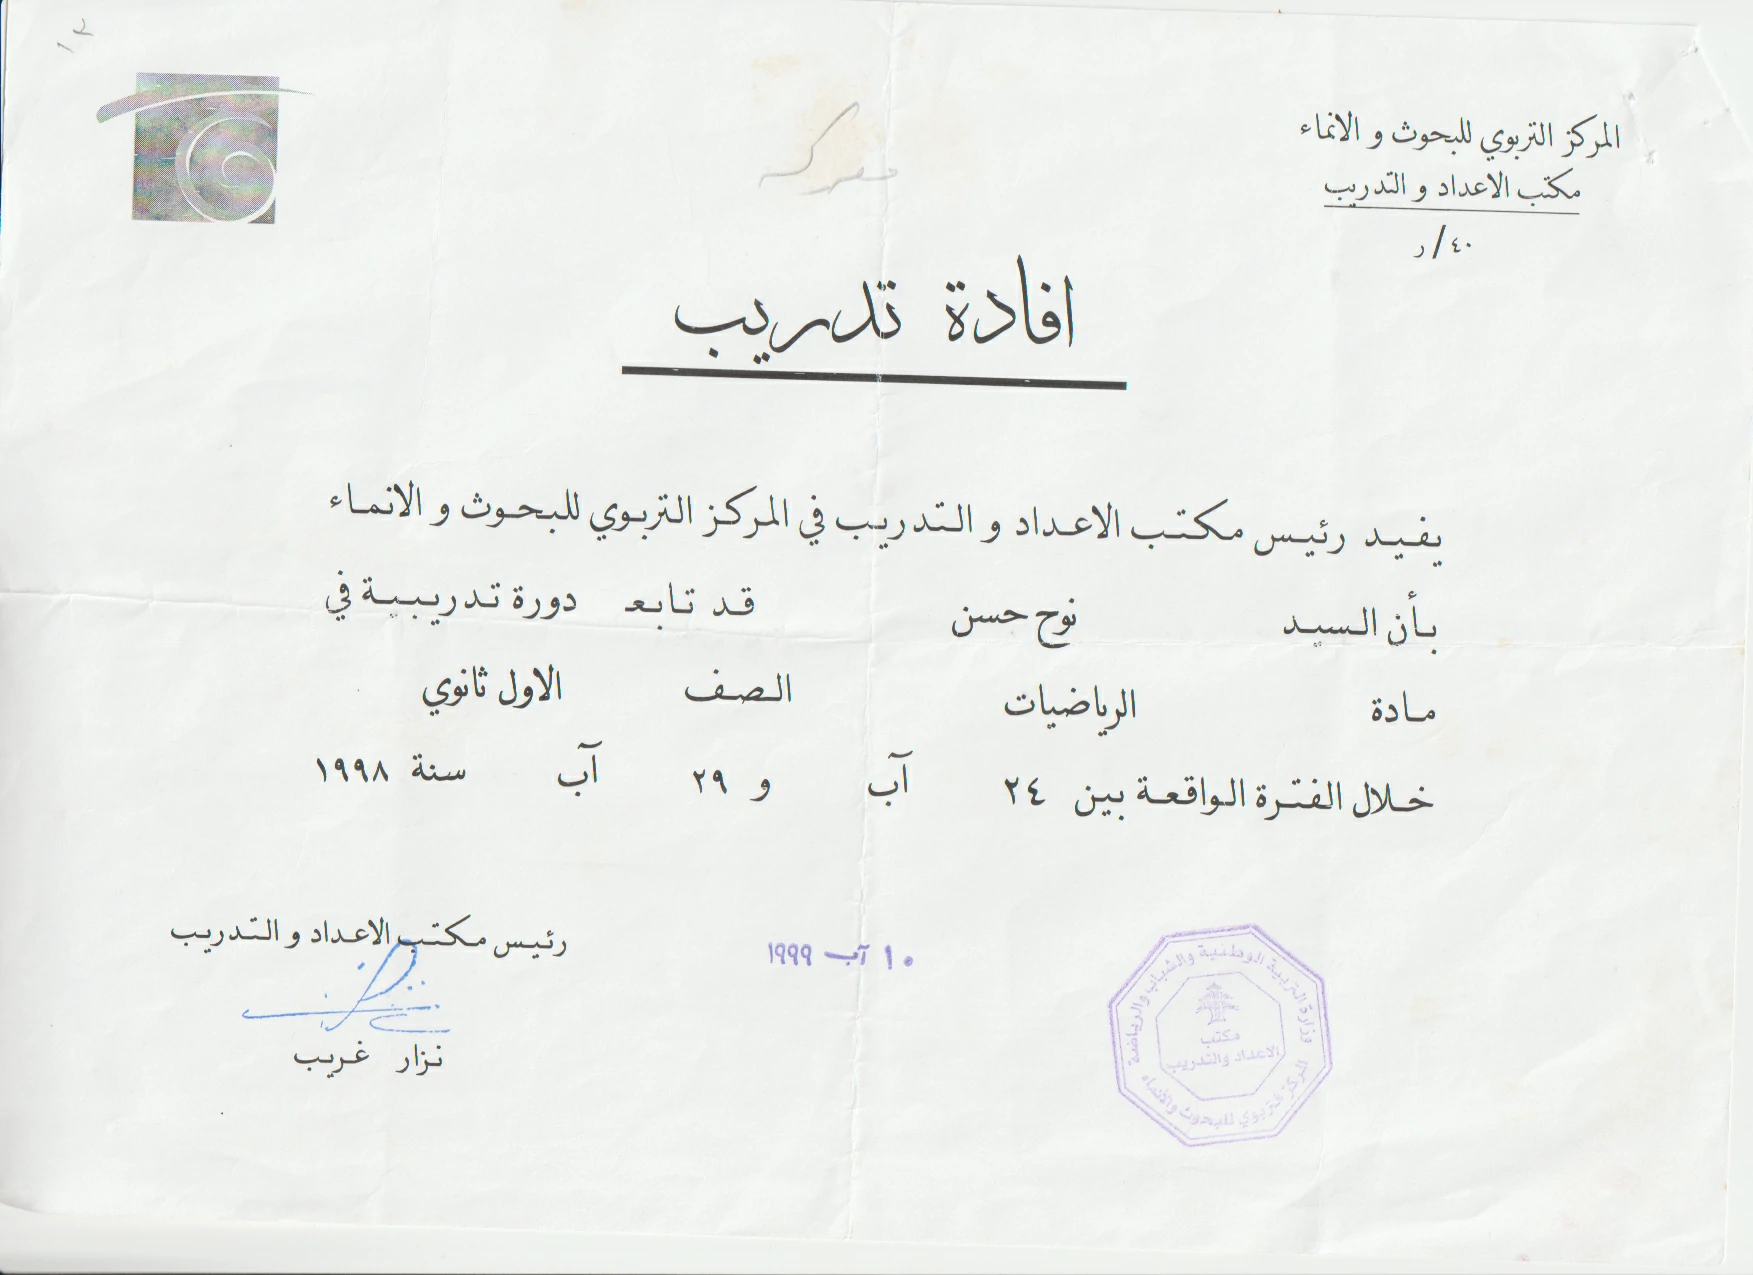 المركز التربوي للبحوث و الانماء
مكتب الاعداد و التدريب
٤٠/ر
افادة تدريب
يفيد رئيس مكتب الاعداد و التدريب في المركز التربوي للبحوث و الانماء
بأن السيد نوح حسن قد تابع دورة تدريبية في
مادة الرياضيات الصف الاول ثانوي
خلال الفترة الواقعة بين ٢٤ آب و ٢٩ آب سنة ١٩٩٨
رئيس مكتب الاعداد و التدريب
١٠ آب ١٩٩٩
نزار غريب
وزارة التربية الوطنية والشباب والرياضة
المركز التربوي للبحوث والانماء
مكتب
الاعداد والتدريب